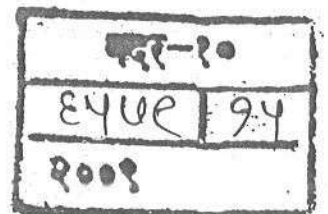 बदर-१०
६५७९ | १५
२००९